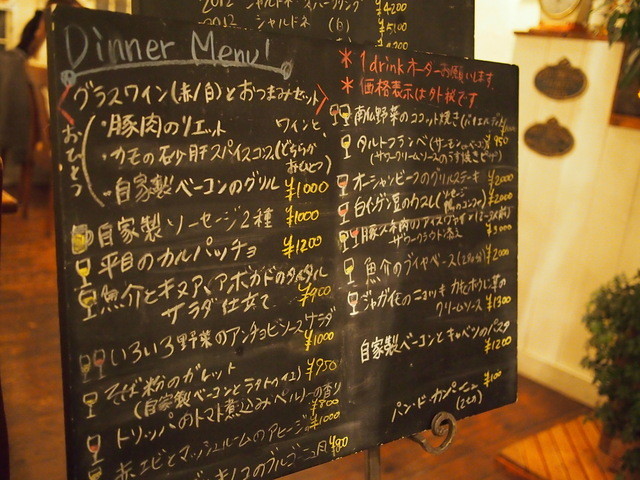 2012 シャルドネ スパークリング ¥4200
2012 シャルドネ (白) ¥5100
¥4200
Dinner Menu!
* 1drinkオーダーお願いします.
* 価格表示は外税です
〈グラスワイン(赤/白)とおつまみセット〉
おひとつ
・豚肉のリエット ワインと、
・カモの砂肝スパイスコンフィ(どちらか
おひとつ)
・自家製ベーコンのグリル ¥1000
自家製ソーセージ2種 ¥1000
平目のカルパッチョ ¥1200
魚介とキヌア、アボガドのタルタル
サラダ仕立て ¥900
いろいろ野菜のアンチョビソースサラダ
¥1000
そば粉のガレット ¥950
(自家製ベーコンとラタトゥイユ)
トリッパのトマト煮込み ベルノーの香り
¥800
赤エビとマッシュルームのアヒージョ ¥1000
キノコのブルゴーニュ風 ¥900
南仏野菜のココット焼き
タルトフランベ(サーモンorベーコン) ¥950
(サワークリームソースのうす焼きピザ)
オーシャンビーフのグリルステーキ ¥2000
白インゲン豆のカスレ(ソーセージ
鴨のコンフィ) ¥2000
豚スネ肉のアイスヴァイン
ザワークラウト添え ¥3000
魚介のブイヤベース ¥2000
ジャガイモのニョッキ
クリームソース ¥1300
自家製ベーコンとキャベツのパスタ
¥1200
パン・ド・カンパーニュ ¥100
(2cut)